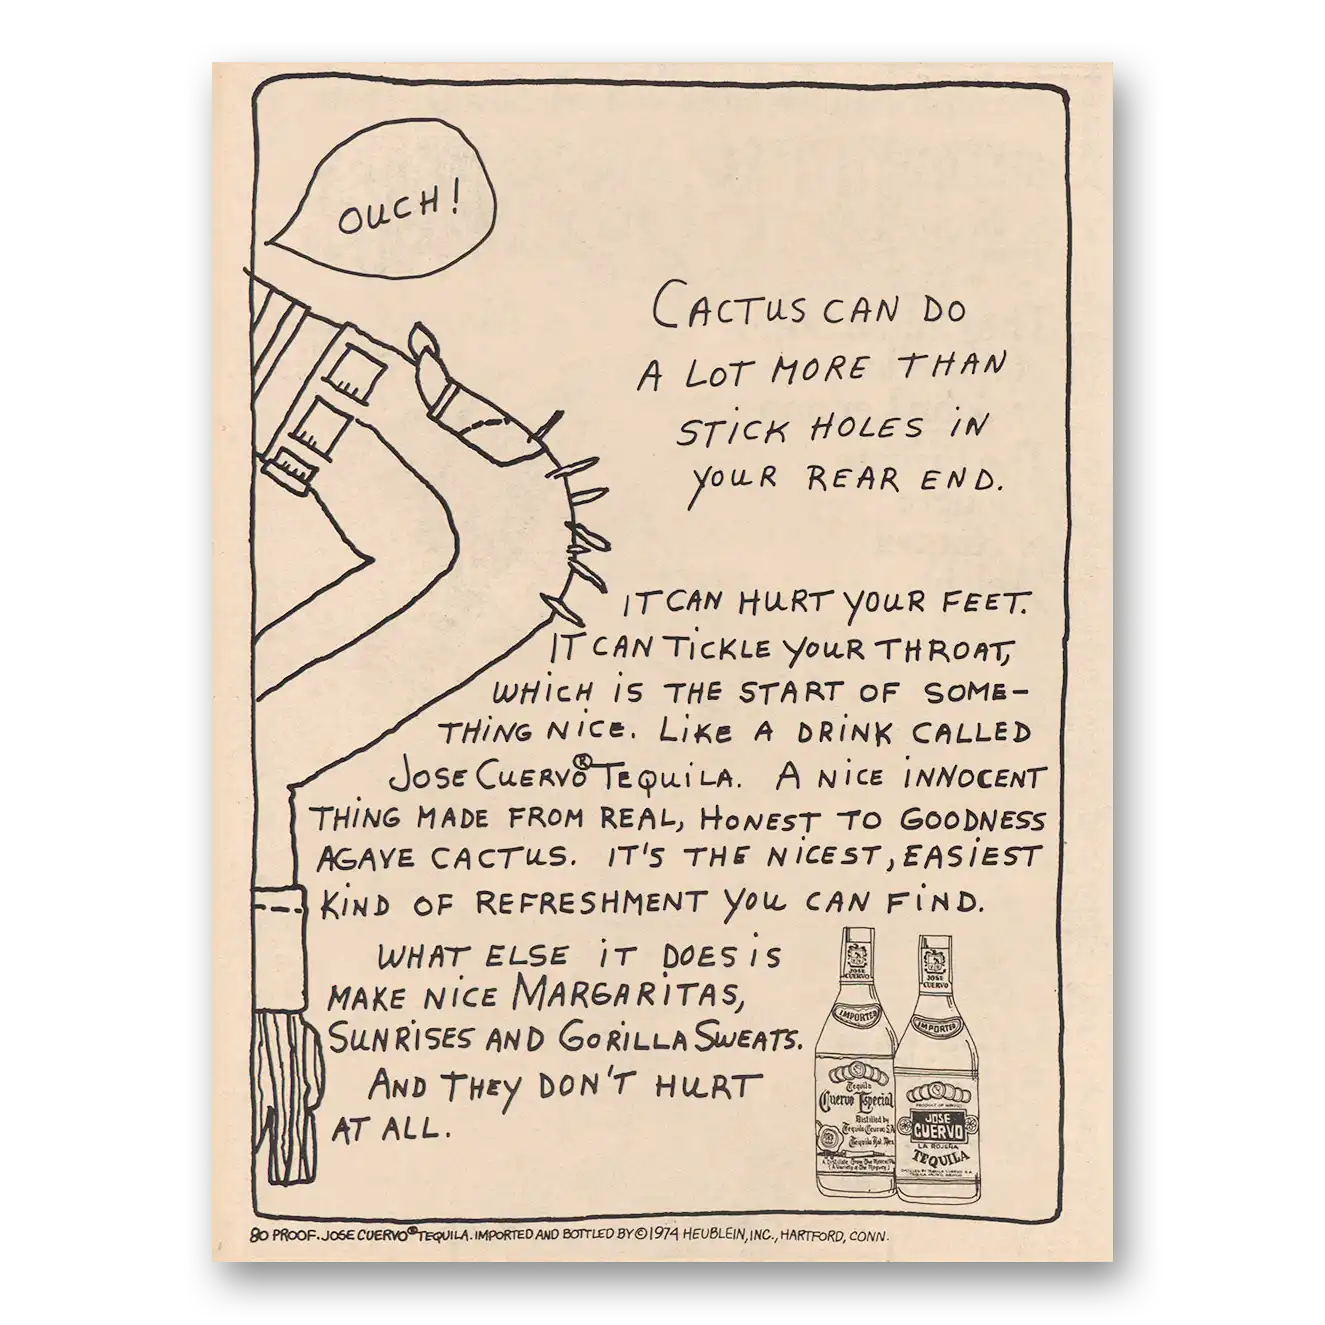 OUCH!
CACTUS CAN DO
A LOT MORE THAN
STICK HOLES IN
YOUR REAR END.
IT CAN HURT YOUR FEET.
IT CAN TICKLE YOUR THROAT,
WHICH IS THE START OF SOME-
THING NICE. LIKE A DRINK CALLED
JOSE CUERVO® TEQUILA. A NICE INNOCENT
THING MADE FROM REAL, HONEST TO GOODNESS
AGAVE CACTUS. IT'S THE NICEST, EASIEST
KIND OF REFRESHMENT YOU CAN FIND.
WHAT ELSE IT DOES IS
MAKE NICE MARGARITAS,
SUNRISES AND GORILLA SWEATS.
AND THEY DON'T HURT
AT ALL.
JOSE
CUERVO
IMPORTED
Tequila
Cuervo Especial
Distilled by
Tequila Cuervo S.A.
JOSE
CUERVO
IMPORTED
PRODUCT OF MEXICO
JOSE
CUERVO
LA ROJEÑA
TEQUILA
80 PROOF. JOSE CUERVO® TEQUILA. IMPORTED AND BOTTLED BY © 1974 HEUBLEIN, INC., HARTFORD, CONN.